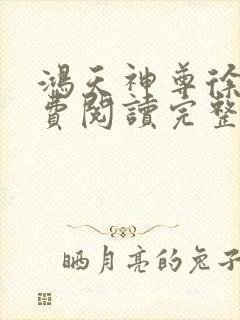 鴻天神尊徐
費閱讀完整
晒月亮的兔子